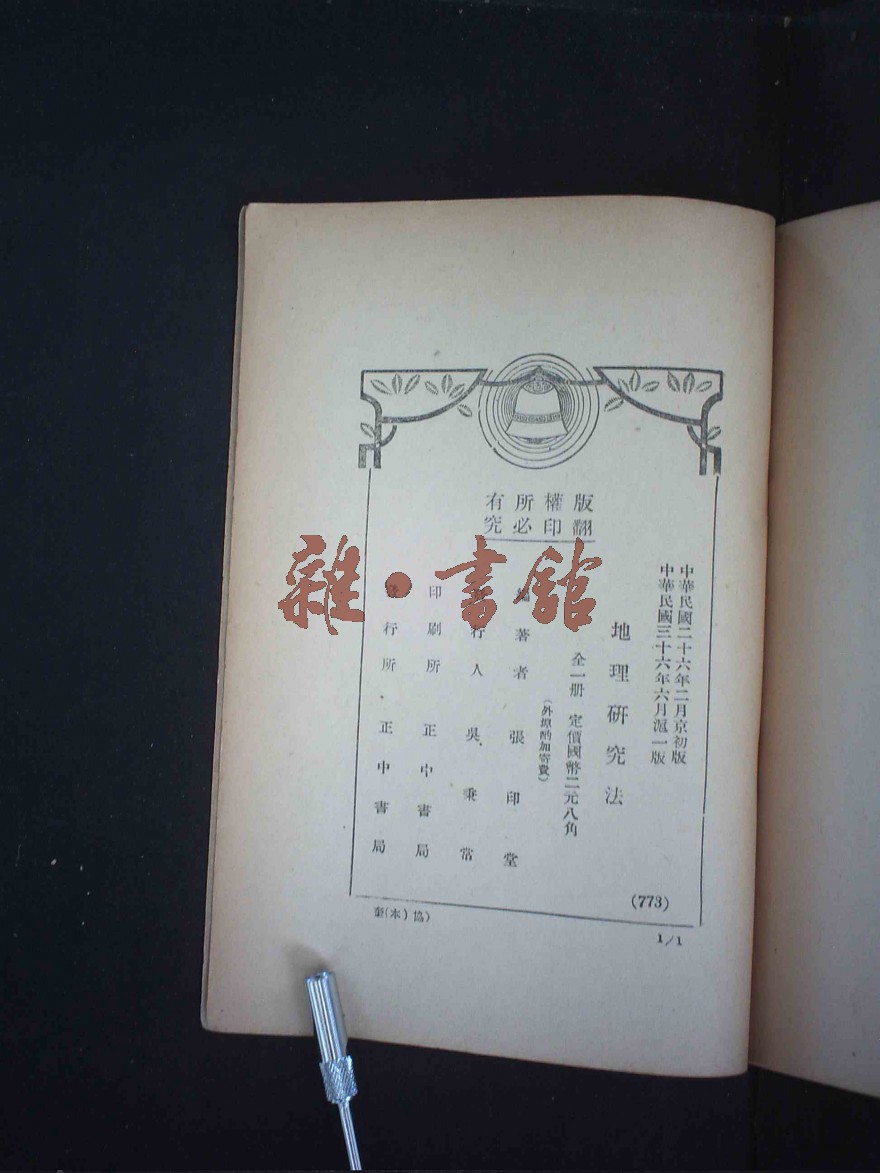 版權所有
翻印必究
中華民國二十六年二月京初版
中華民國三十六年六月滬一版
地理研究法
全一册 定價國幣二元八角
(外埠酌加寄費)
編著者 張印堂
發行人 吳秉常
印刷所 正中書局
發行所 正中書局
(773)
(本)協)
1/1
雜·書館